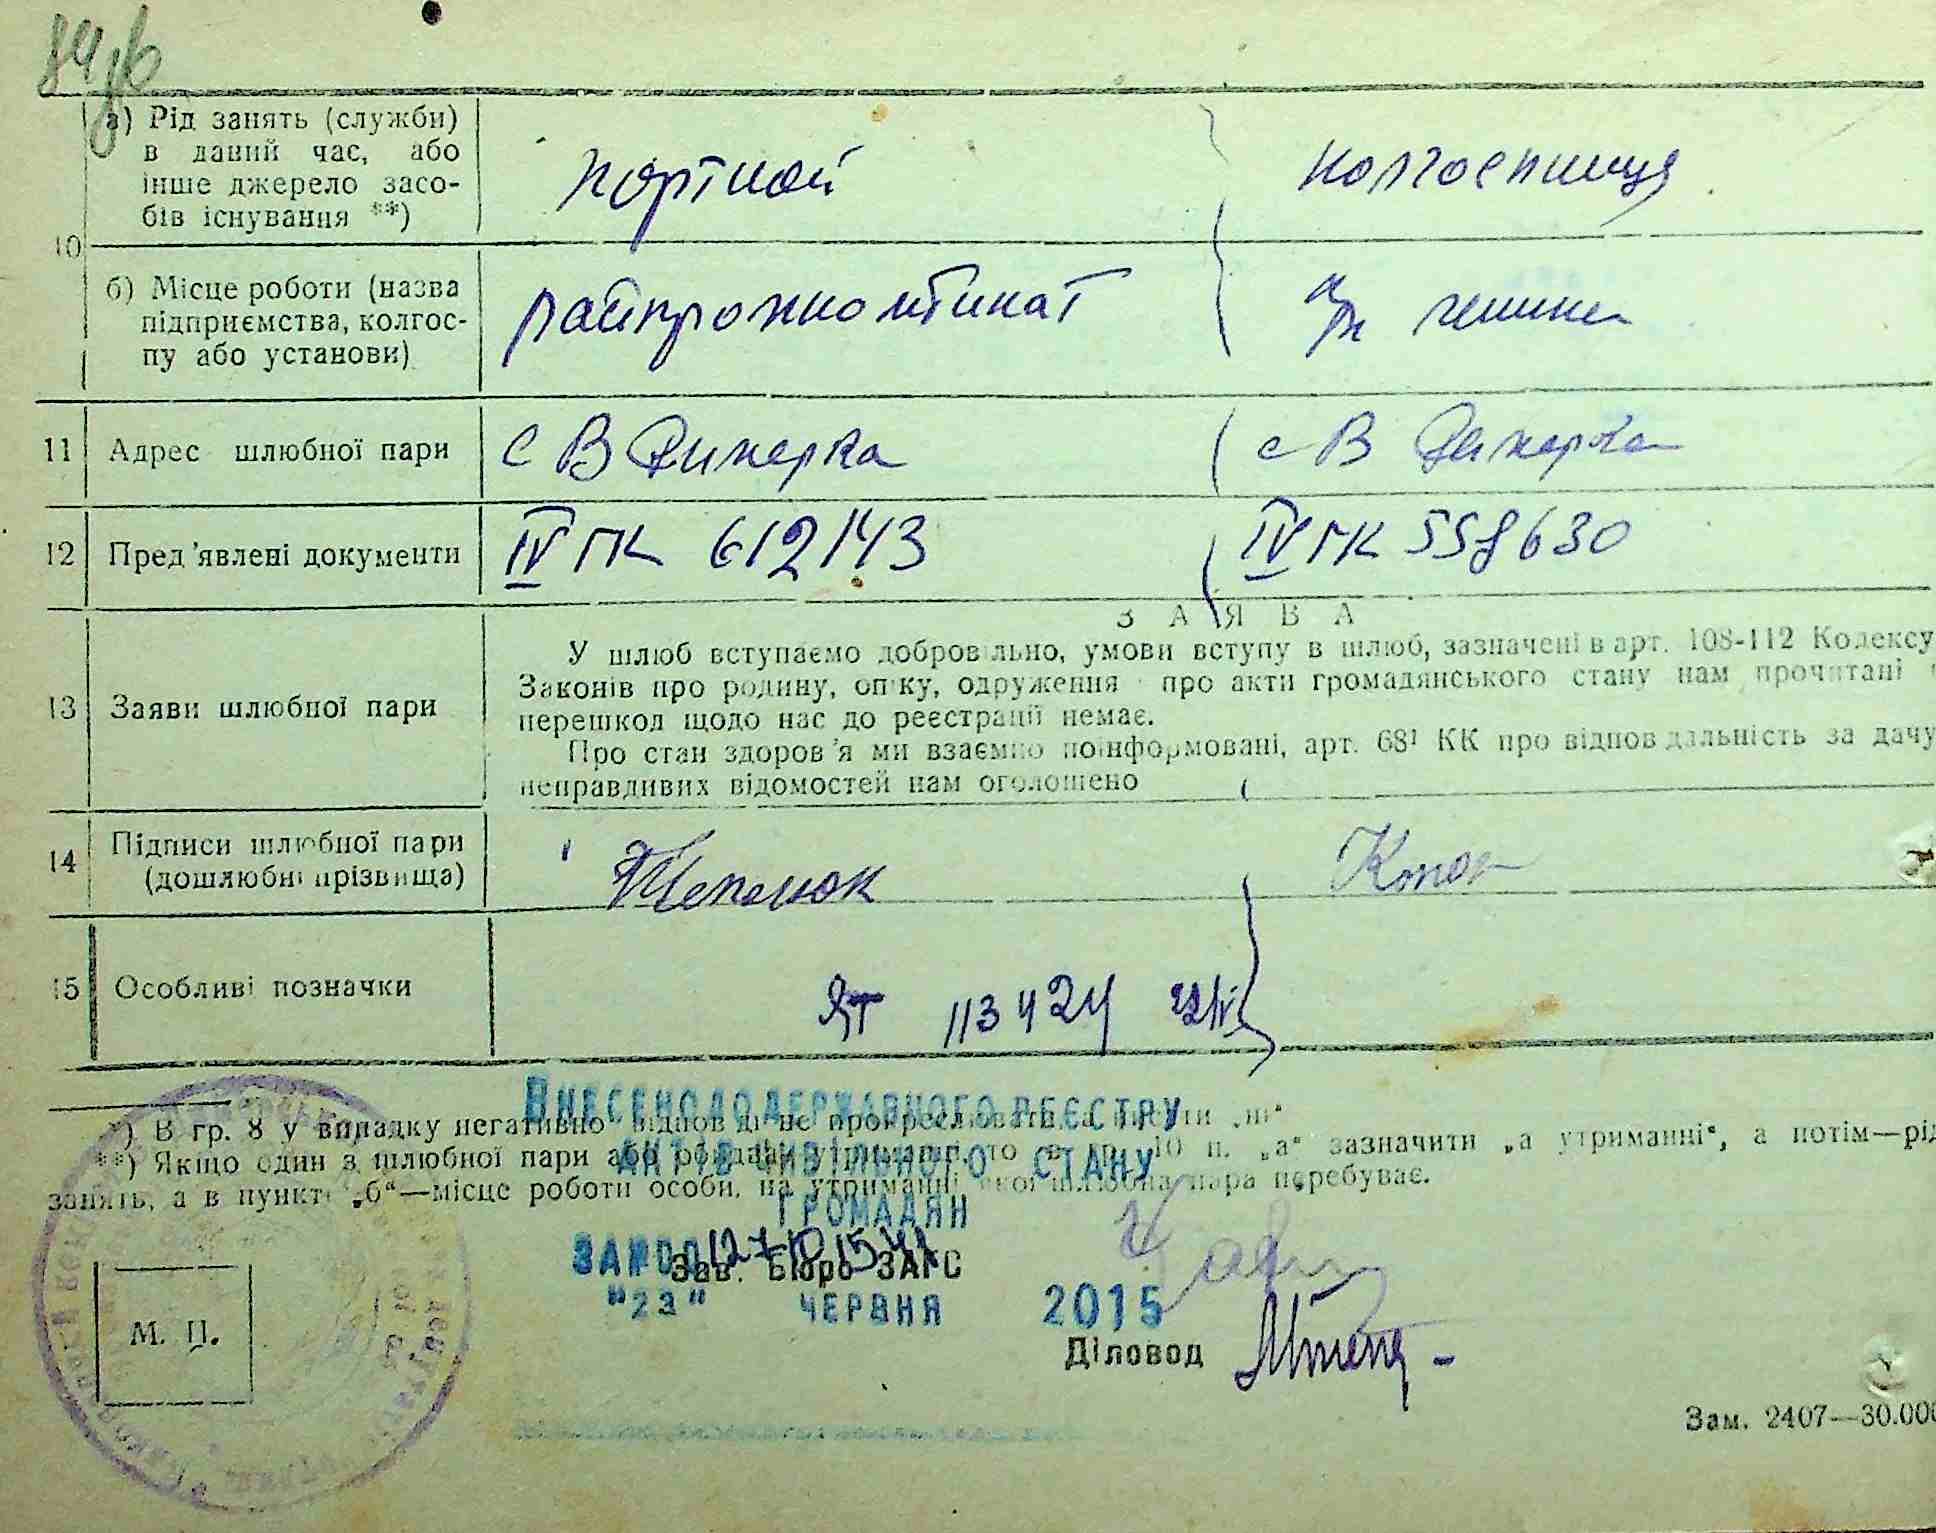 10
а) Рід занять (служби)
в даний час, або
інше джерело засо-
бів існування **)
портной
колгоспниця
б) Місце роботи (назва
підприємства, колгос-
пу або установи)
райпромкомбинат
11 Адрес шлюбної пари
с В Димерка
с В Димерка
12 Пред'явлені документи
IV ГК 612143
IV ГК 558630
ЗАЯВА
13 Заяви шлюбної пари
У шлюб вступаємо добровільно, умови вступу в шлюб, зазначені в арт. 108-112 Кодексу
Законів про родину, опіку, одруження про акти громадянського стану нам прочитані
перешкод щодо нас до реєстрації немає.
Про стан здоров'я ми взаємно поінформовані, арт. 68¹ КК про відповідальність за дачу
неправдивих відомостей нам оголошено
14 Підписи шлюбної пари
(дошлюбні прізвища)
15 Особливі позначки
ЯТ 113424
*) В гр. 8 у випадку негативно
**) Якщо один з шлюбної пари або обидва утриманні, то в гр. 10 п. „а“ зазначити „а утриманні“, а потім—рід
занять, а в пункті „б“—місце роботи особи, на утриманні якої шлюбна пара перебуває.
ВНЕСЕНО ДО ДЕРЖАВНОГО РЕЄСТРУ
АКТІВ ЦИВІЛЬНОГО СТАНУ
ГРОМАДЯН
ЗА №
Зав. Бюро ЗАГС
"23" ЧЕРВНЯ 2015
М. П.
Діловод
Зам. 2407—30.000